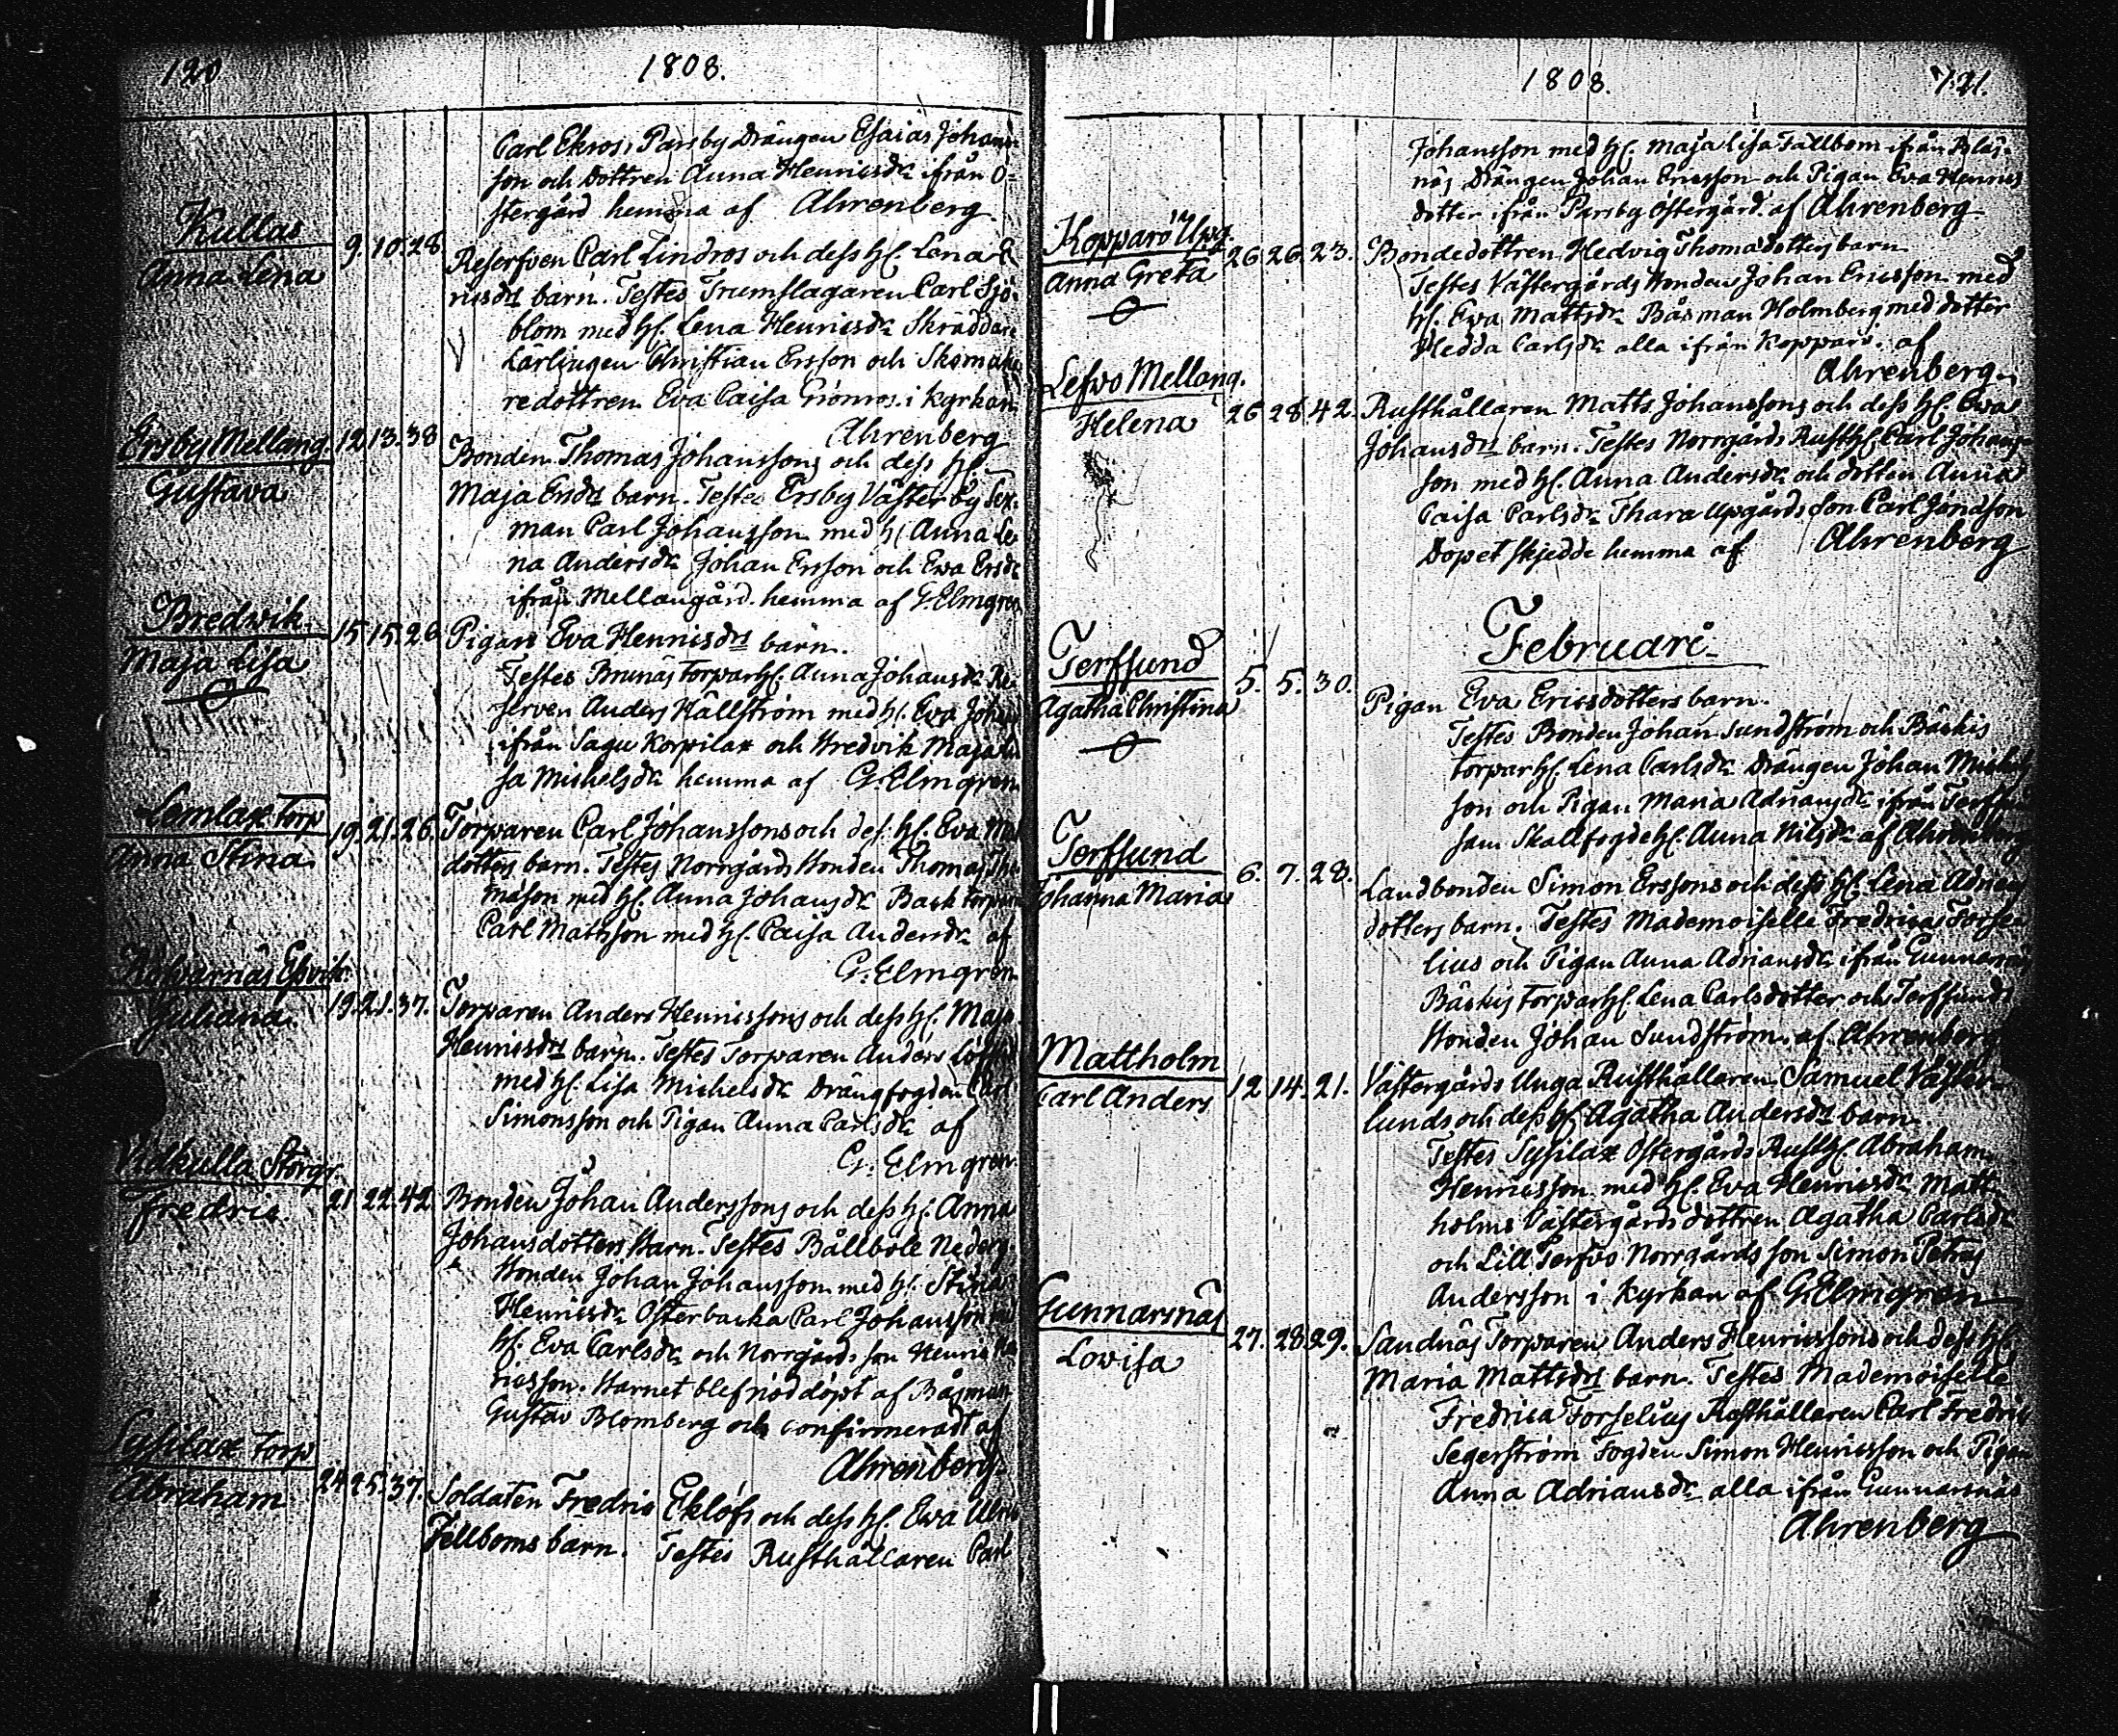 120
1808.
Carl Ekros, Parsby Drängen Esaias Johans-
son och Dottren Anna Henricsdr ifrån Ö-
stergård hemma af Ahrenberg
Kullas
Anna Lena
9. 10. 28
Reserfven Carl Lindros och dess H. Lena E
ricsdrs barn. Testes Trumslagaren Carl Sjö-
blom med H. Lena Henricsdr Skräddare
Lärlingen Christian Ersson och Skomaka
redottren Eva Caisa Grönros i Kyrkan
Ahrenberg
Ersby Mellang.
Gustava
12 13. 38
Bonden Thomas Johanssons och dess H.
Maja Ersdrs barn. Testes Ersby Västerby Sex-
man Carl Johansson med H. Anna Le
na Andersdr Johan Ersson och Eva Ersdr
ifrån Mellangård hemma af G. Elmgren
Bredvik
Maja Lisa
15 15. 26
Pigans Eva Henricsdrs barn.
Testes Brunäs torpar H. Anna Johansdr Re-
serven Anders Hällström med H. Eva Johans
ifrån Sagu Korpilax och Bredvik Maja Li
sa Michelsdr hemma af G. Elmgren
Lemlax Torp
Anna Stina
19. 21. 26.
Torparen Carl Johanssons och dess H. Eva Mats
dotters barn. Testes Norrgårds Bonden Thomas Tho
masson med H. Anna Johansdr Back torparen
Carl Matsson med H. Caisa Andersdr af
G. Elmgren
Kolvarnäs Espvik
Juliana
19. 21. 37.
Torparen Anders Henricssons och dess H. Maja
Henricsdrs barn. Testes Torparen Anders
med H. Lisa Michelsdr Drängfogden Carl
Simonsson och Pigan Anna Carlsdr af
G. Elmgren
Vidkulla Storg.
Fredric
21. 22. 42
Bonden Johan Anderssons och dess H. Anna
Johansdotters Barn. Testes Bållbole Nederg.
Bonden Johan Johansson med H. Stina
Henricsdr Österbacka Carl Johansson med
H. Eva Carlsdr och Norrgårds son Henric Hen
ricsson. Barnet blef nöddöpt af Båsman
Gustav Blomberg och confirmeradt af
Ahrenberg.
Sysilax Torp
Abraham
24 25. 37.
Soldaten Fredric Eklöfs och dess H. Eva Ulrica
Fellboms barn. Testes Rusthållaren Carl
1808.
121.
Johansson med H. Maja Lisa Fällbom ifrån Blås-
näs Drängen Johan Ericsson och Pigan Eva Henrics
dotter ifrån Parsby Östergård af Ahrenberg
Kopparö Upg.
Anna Greta
26. 26. 23.
Bondedottren Hedvig Thomadotters barn
Testes Västergårds Bonden Johan Ericsson med
H. Eva Mattsdr Båsman Holmberg med dotter
Hedda Carlsdr alla ifrån Kopparö. af
Ahrenberg
Lefvo Mellang.
Helena
26 28. 42.
Rusthållaren Matts Johanssons och dess H. Eva
Johansdrs barn. Testes Norrgårds Rusth. Carl Johans-
son med H. Anna Andersdr och dotten Anna
Caisa Carlsdr Thara Upgårds Son Carl
Dopet skjedde hemma af Ahrenberg
Februari
Terfsund
Agatha Christina
5. 5. 30.
Pigan Eva Ericsdotters barn.
Testes Bonden Johan Sundström och Bäckis
torpar H. Lena Carlsdr Drängen Johan Michels
son och Pigan Maria Adriansdr ifrån Terfsund
sam Skallfogde H. Anna Nilsdr af Ahrenberg
Terfsund
Johanna Maria
6. 7. 28.
Landbonden Simon Erssons och dess H. Lena Adrians
dotters barn. Testes Mademoiselle Fredrica Forse-
lius och Pigan Anna Adriansdr ifrån Gunnarsnäs
Bäckis torpar H. Lena Carlsdotter och Terfsunds
Bonden Johan Sundström af Ahrenberg
Mattholm
Carl Anders
12 14. 21.
Västergårds Unga Rusthållaren Samuel Väster-
lunds och dess H. Agatha Andersdrs barn.
Testes Sysilax Östergårds Rusth. Abraham
Henricsson med H. Eva Henricsdr Matt-
holms Västergårds dottren Agatha Carlsdr
och Lill Terfvo Norrgårds son Simon Petrus
Andersson i Kyrkan af G. Elmgren
Gunnarsnäs
Lovisa
27. 28. 29.
Sandnäs Torparen Anders Henricssons och dess H.
Maria Mattsdrs barn. Testes Mademoiselle
Fredrica Forselius Rusthållaren Carl Fredric
Segerström Fogden Simon Henricsson och Pigan
Anna Adriansdr alla ifrån Gunnarsnäs
Ahrenberg